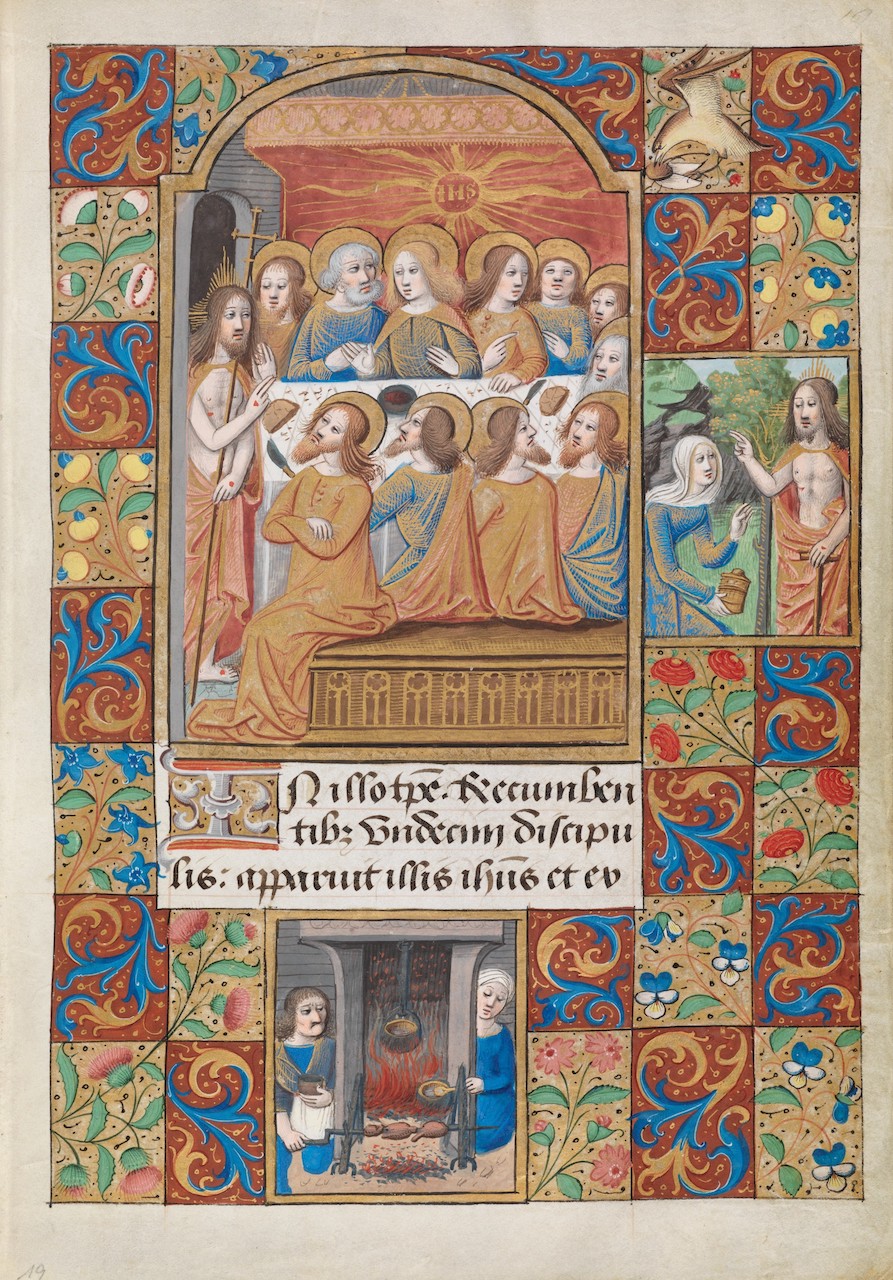 IHS
IN illo tp̃e. Recumben
tibꝫ Vndecim discipu
lis: apparuit illis ihũs et ex
19